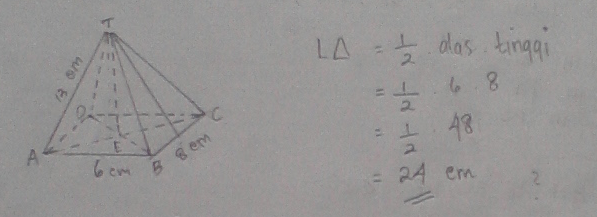 T
13 cm
D
C
A
E
6 cm
B
8 cm
L∆ = 1/2 . alas . tinggi
= 1/2 . 6 . 8
= 1/2 . 48
= 24 cm ?